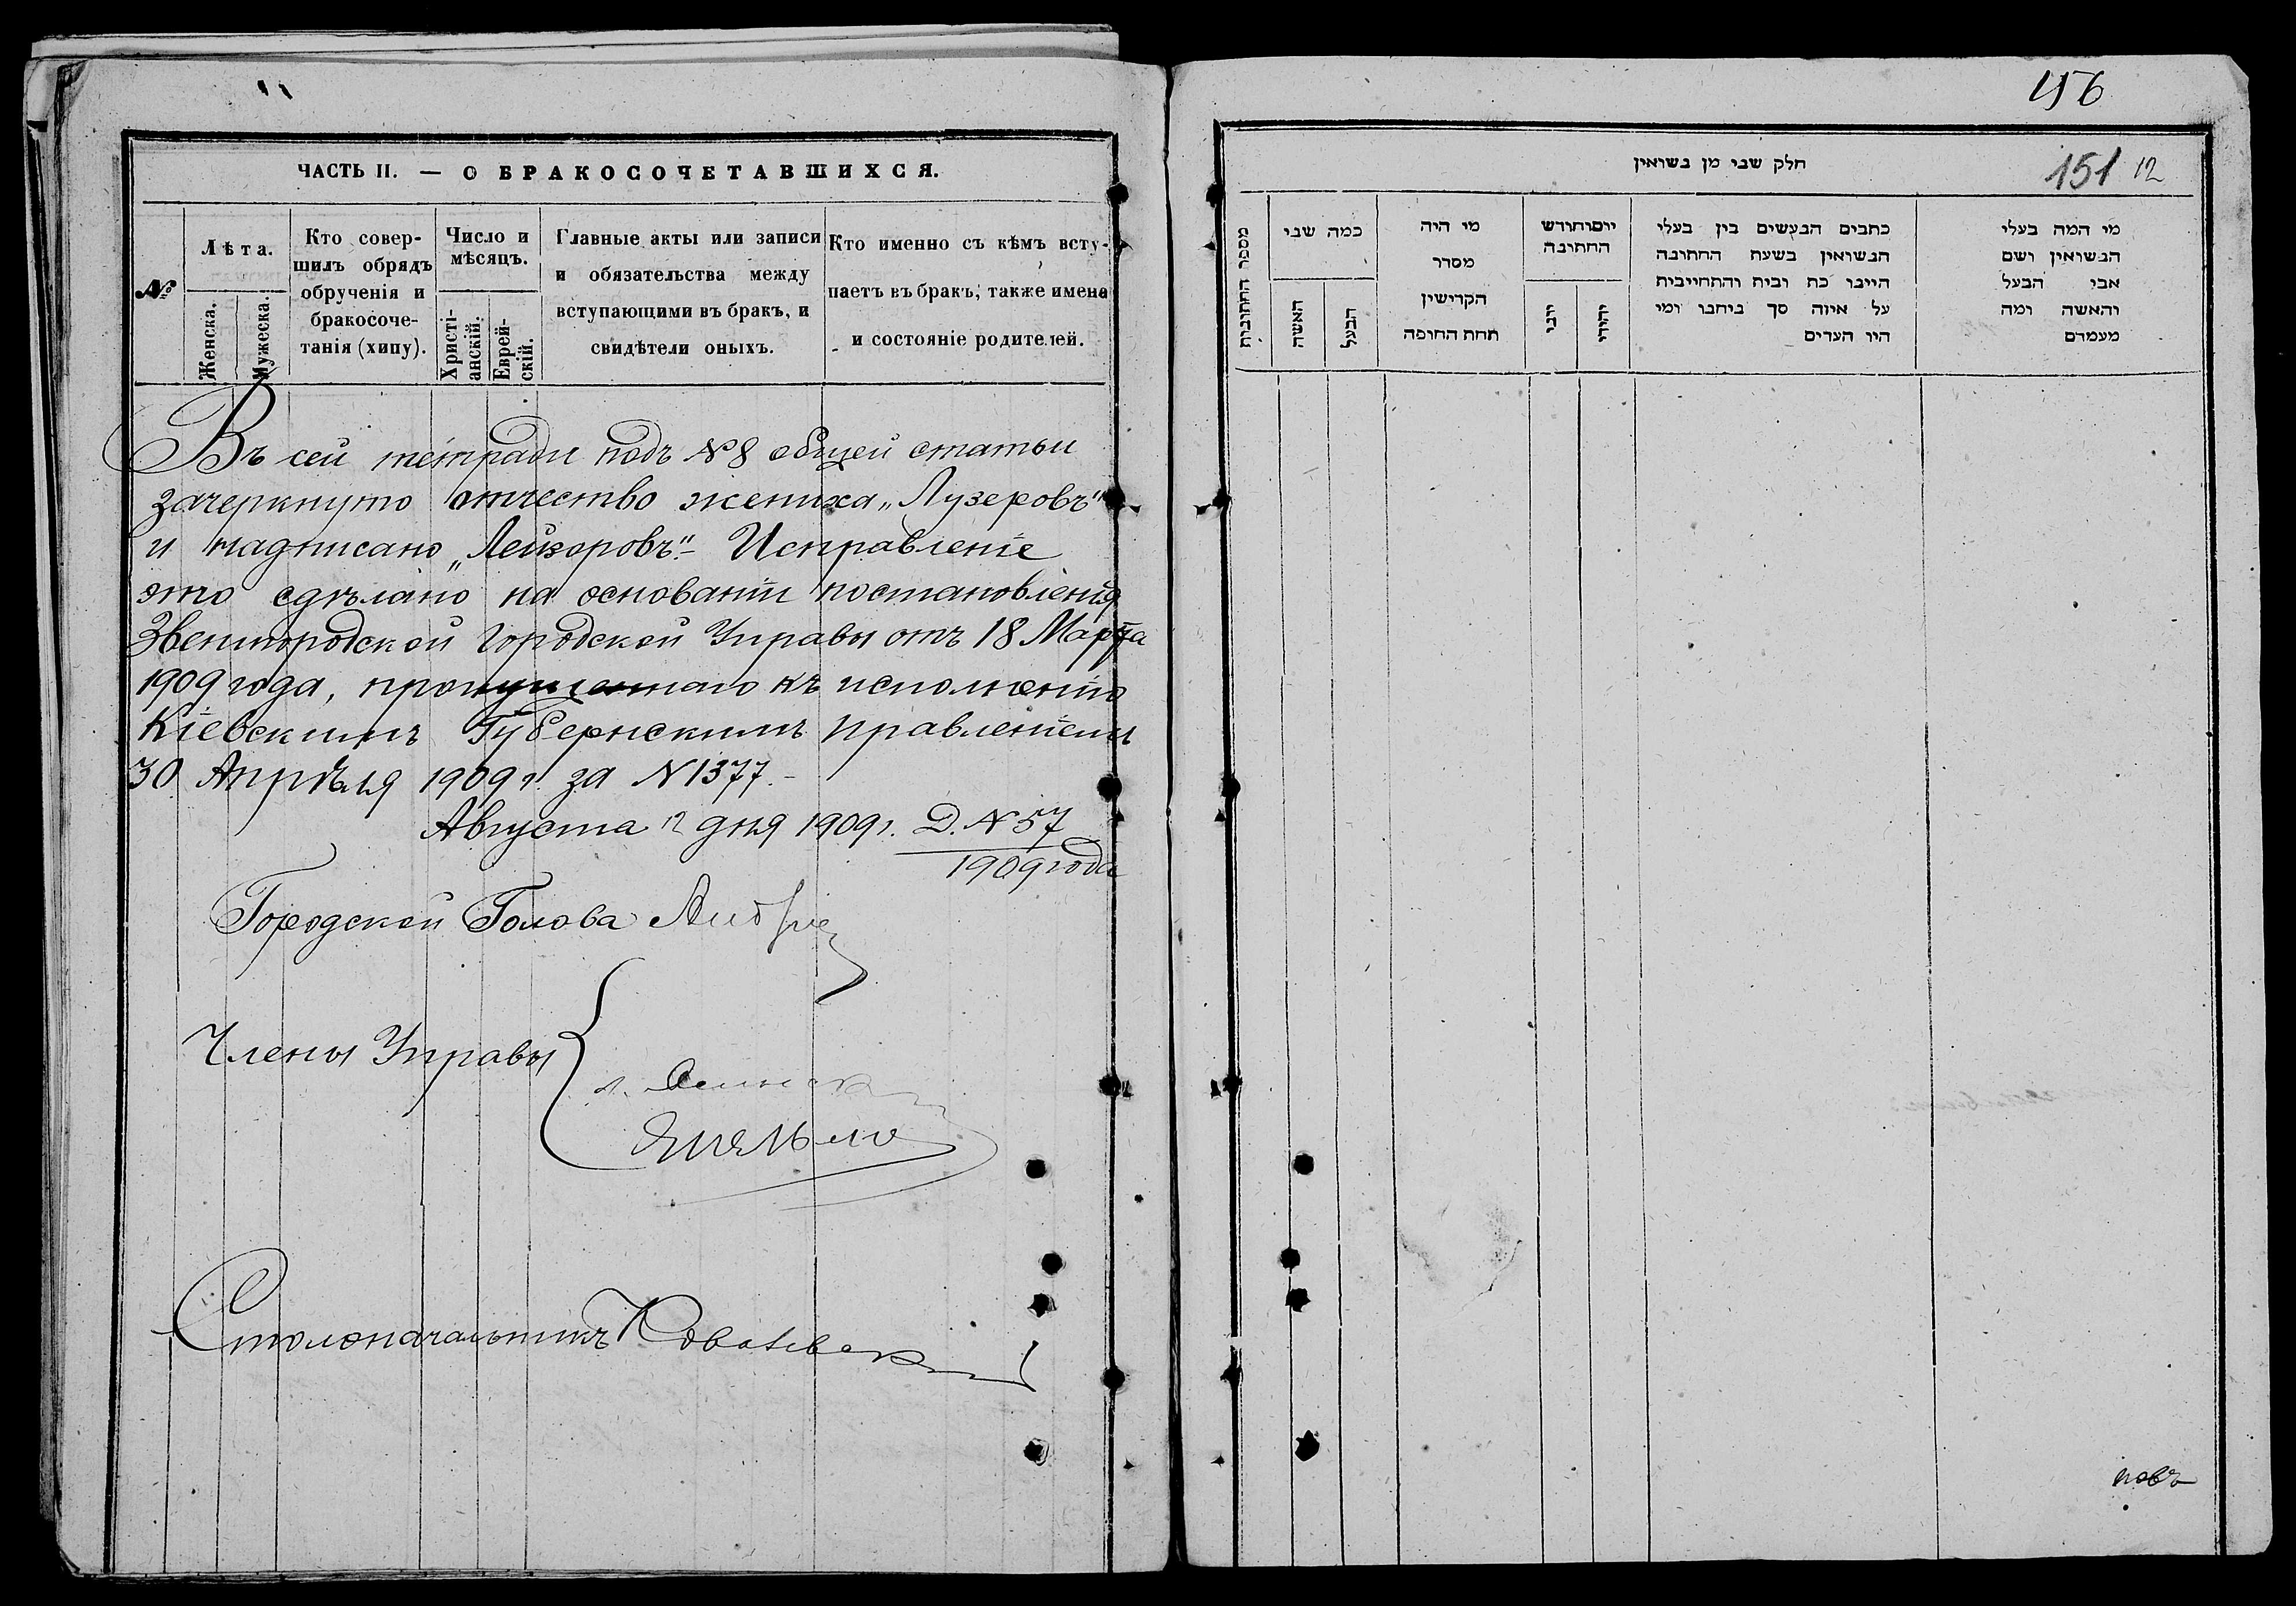 ЧАСТЬ II. — О БРАКОСОЧЕТАВШИХСЯ.
№
Лѣта.
Женска.
Мужеска.
Кто совер-
шилъ обрядъ
обрученія и
бракосоче-
танія (хипу).
Число и
мѣсяцъ.
Христі-
анскій.
Еврей-
скій.
Главные акты или записи
и обязательства между
вступающими въ бракъ, и
свидѣтели оныхъ.
Кто именно съ кѣмъ всту-
паетъ въ бракъ, также имена
и состояніе родителей.
Въ сей тетради подъ №8 общей статьи
зачеркнуто отчество жениха „Лузеровъ"
и надписано „Лейзоровъ".- Исправленіе
это сдѣлано на основаніи постановленія
Звенигородской Городской Управы отъ 18 Марта
1909 года, пропущеннаго къ исполненію
Кіевскимъ Губернскимъ Правленіемъ
30 Апрѣля 1909 г. за №1377.-
Августа 12 дня 1909 г. Д. №57
1909 года
Городской Голова
Члены Управы
Столоначальникъ Ковалевскій
156
חלק שני מן נשואין
151 12
מספר החתונות
כמה שני
האשה
הבעל
מי היה
מסדר
הקדישין
תחת החופה
יום וחודש
החתונה
יוני
יהודי
כתבים הנעשים בין בעלי
הנשואין בשעת החתונה
היינו כת ובית והתחייבית
על איזה סך ביחבו ומי
היו העדים
מי המה בעלי
הנשואין ושם
אבי הבעל
והאשה ומה
מעמדם
новъ